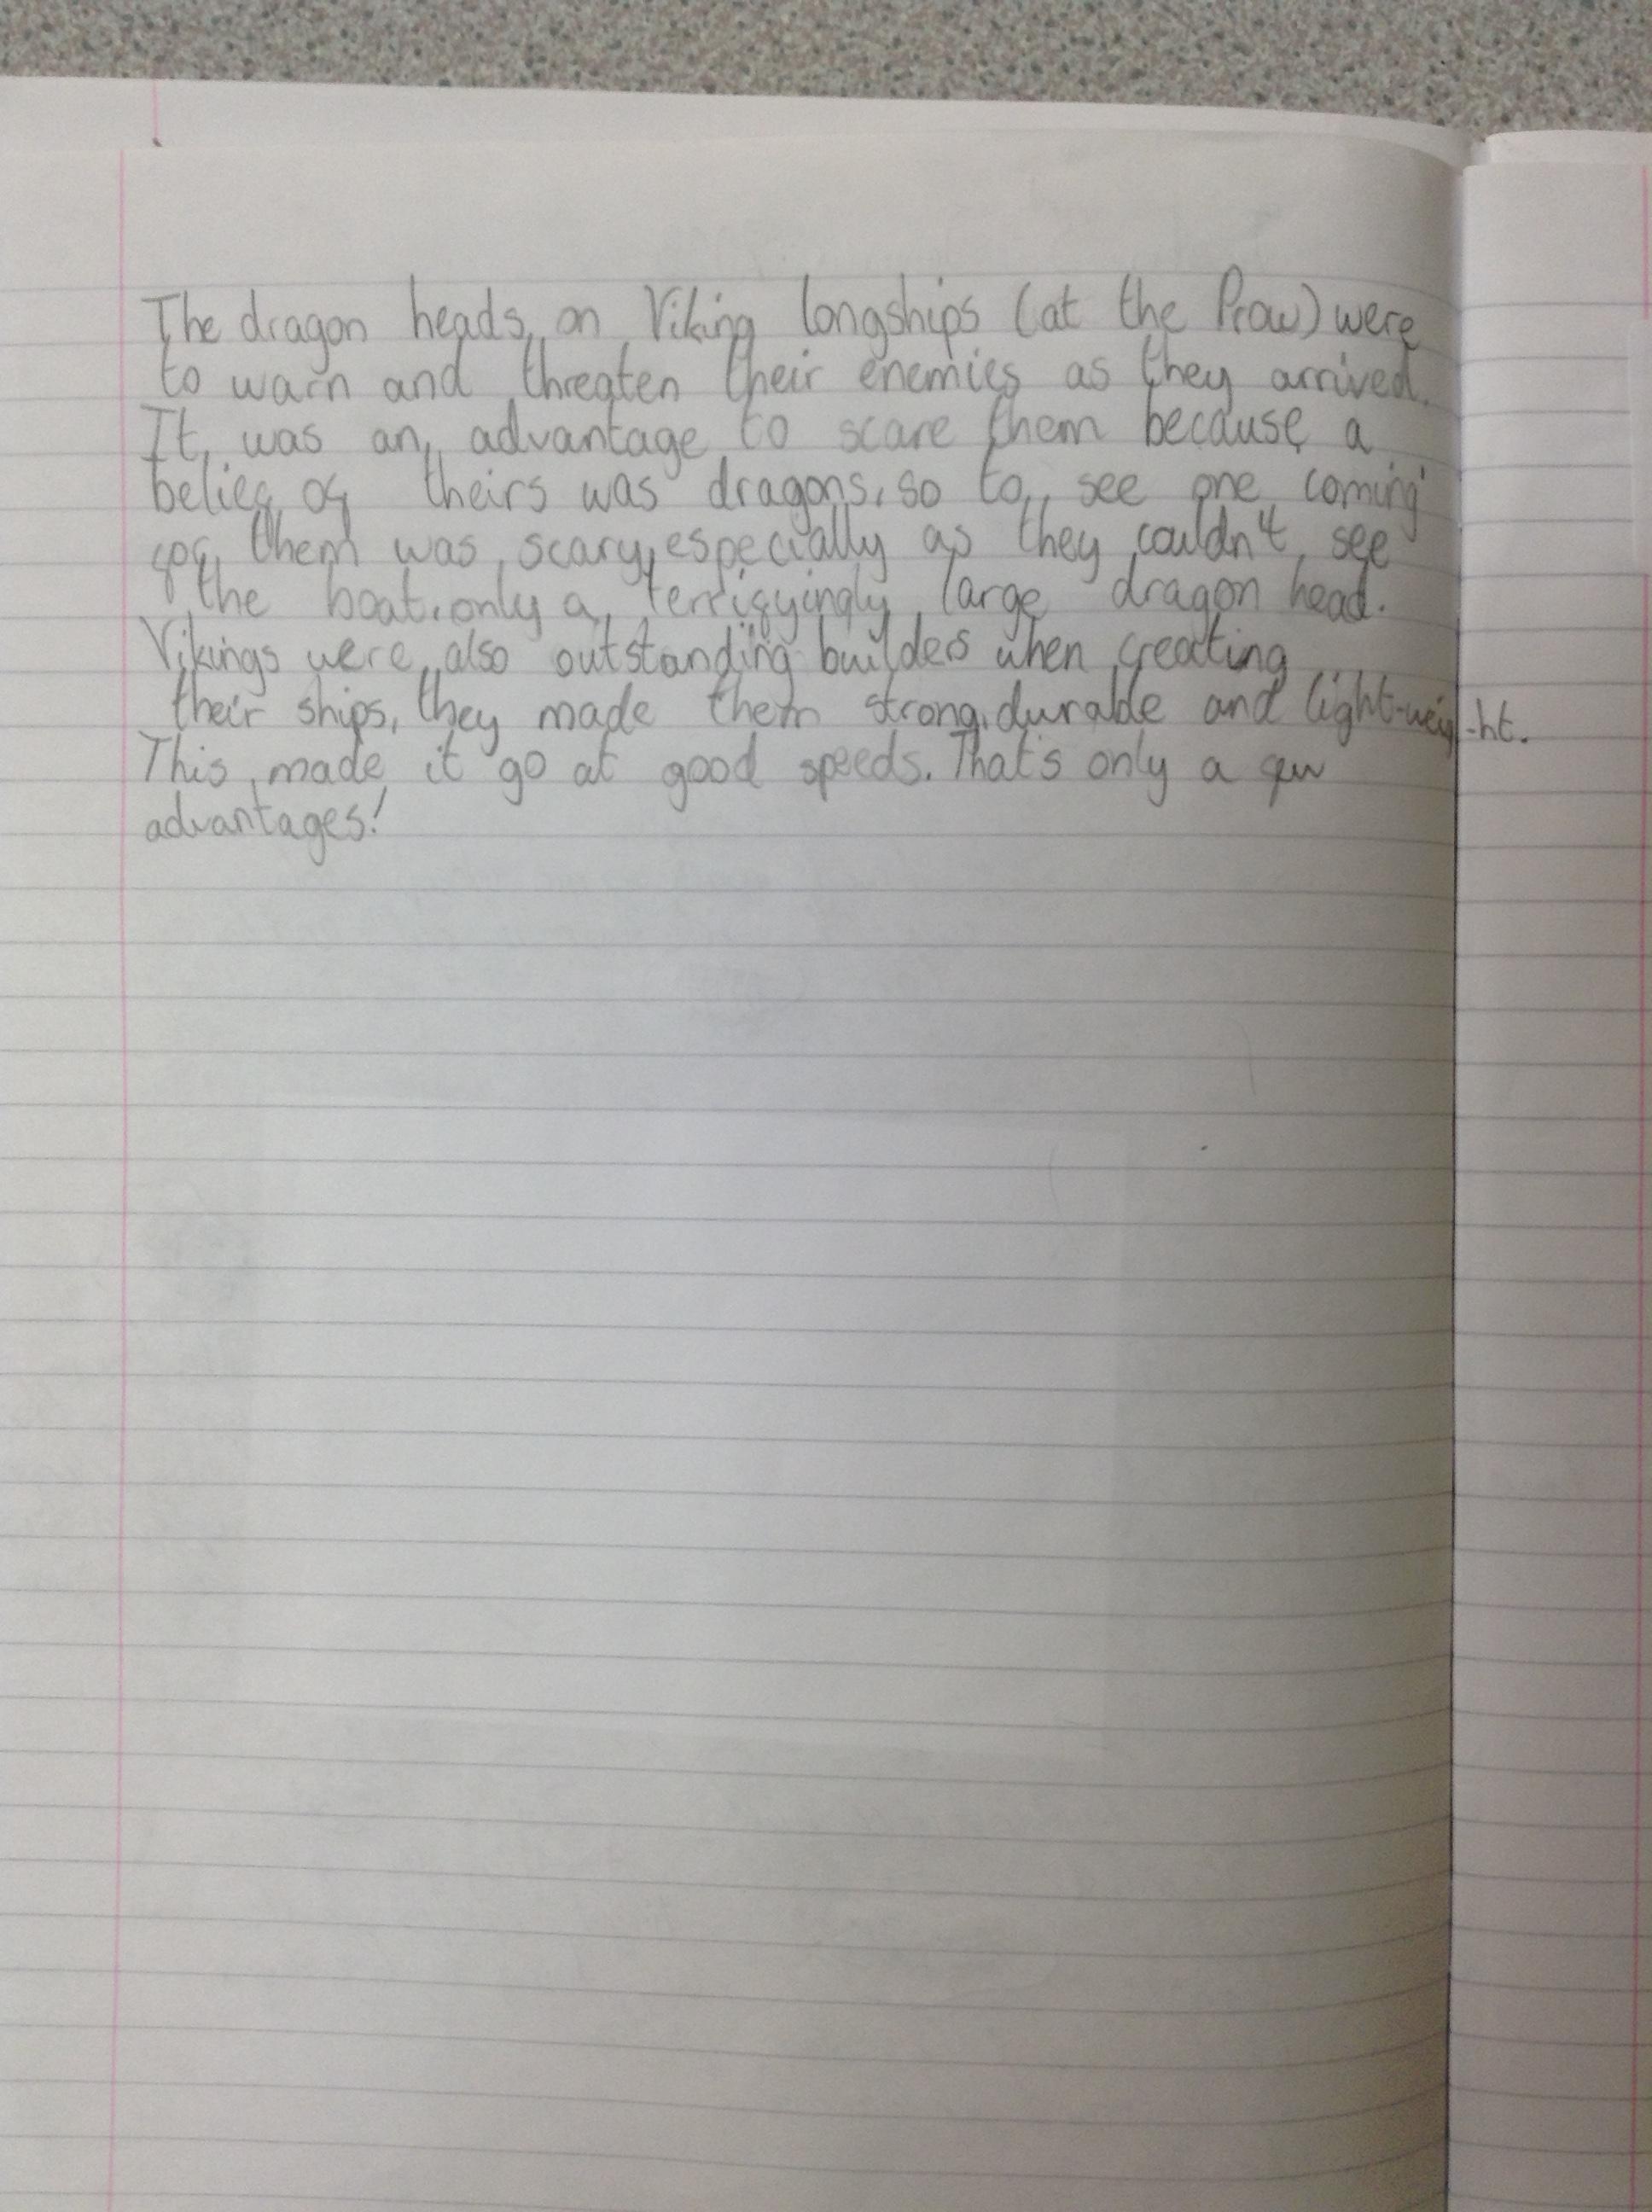 The dragon heads on Viking longships (at the Prow) were
to warn and threaten their enemies as they arrived.
It was an advantage to scare them because a
belief of theirs was dragons, so to see one coming
for them was scary, especially as they couldn't see
the boat, only a terrifyingly large dragon head.
Vikings were also outstanding builders when creating
their ships, they made them strong, durable and light-weig-ht.
This made it go at good speeds. That's only a few
advantages!